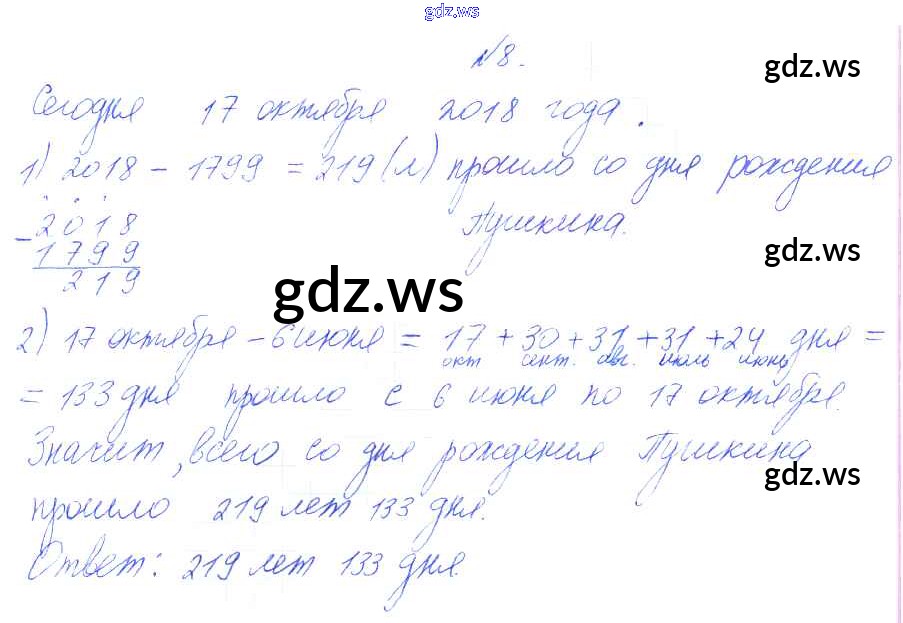 gdz.ws
№8.
gdz.ws
Сегодня 17 октября 2018 года.
1) 2018 - 1799 = 219 (л) прошло со дня рождения
Пушкина.
- 2018
1799
219
gdz.ws
gdz.ws
2) 17 октября - 6 июня = 17 + 30 + 31 + 31 + 24 дня =
окт сент. ав. июль июнь
= 133 дня прошло с 6 июня по 17 октября.
Значит, всего со дня рождения Пушкина
gdz.ws
прошло 219 лет 133 дня.
Ответ: 219 лет 133 дня.